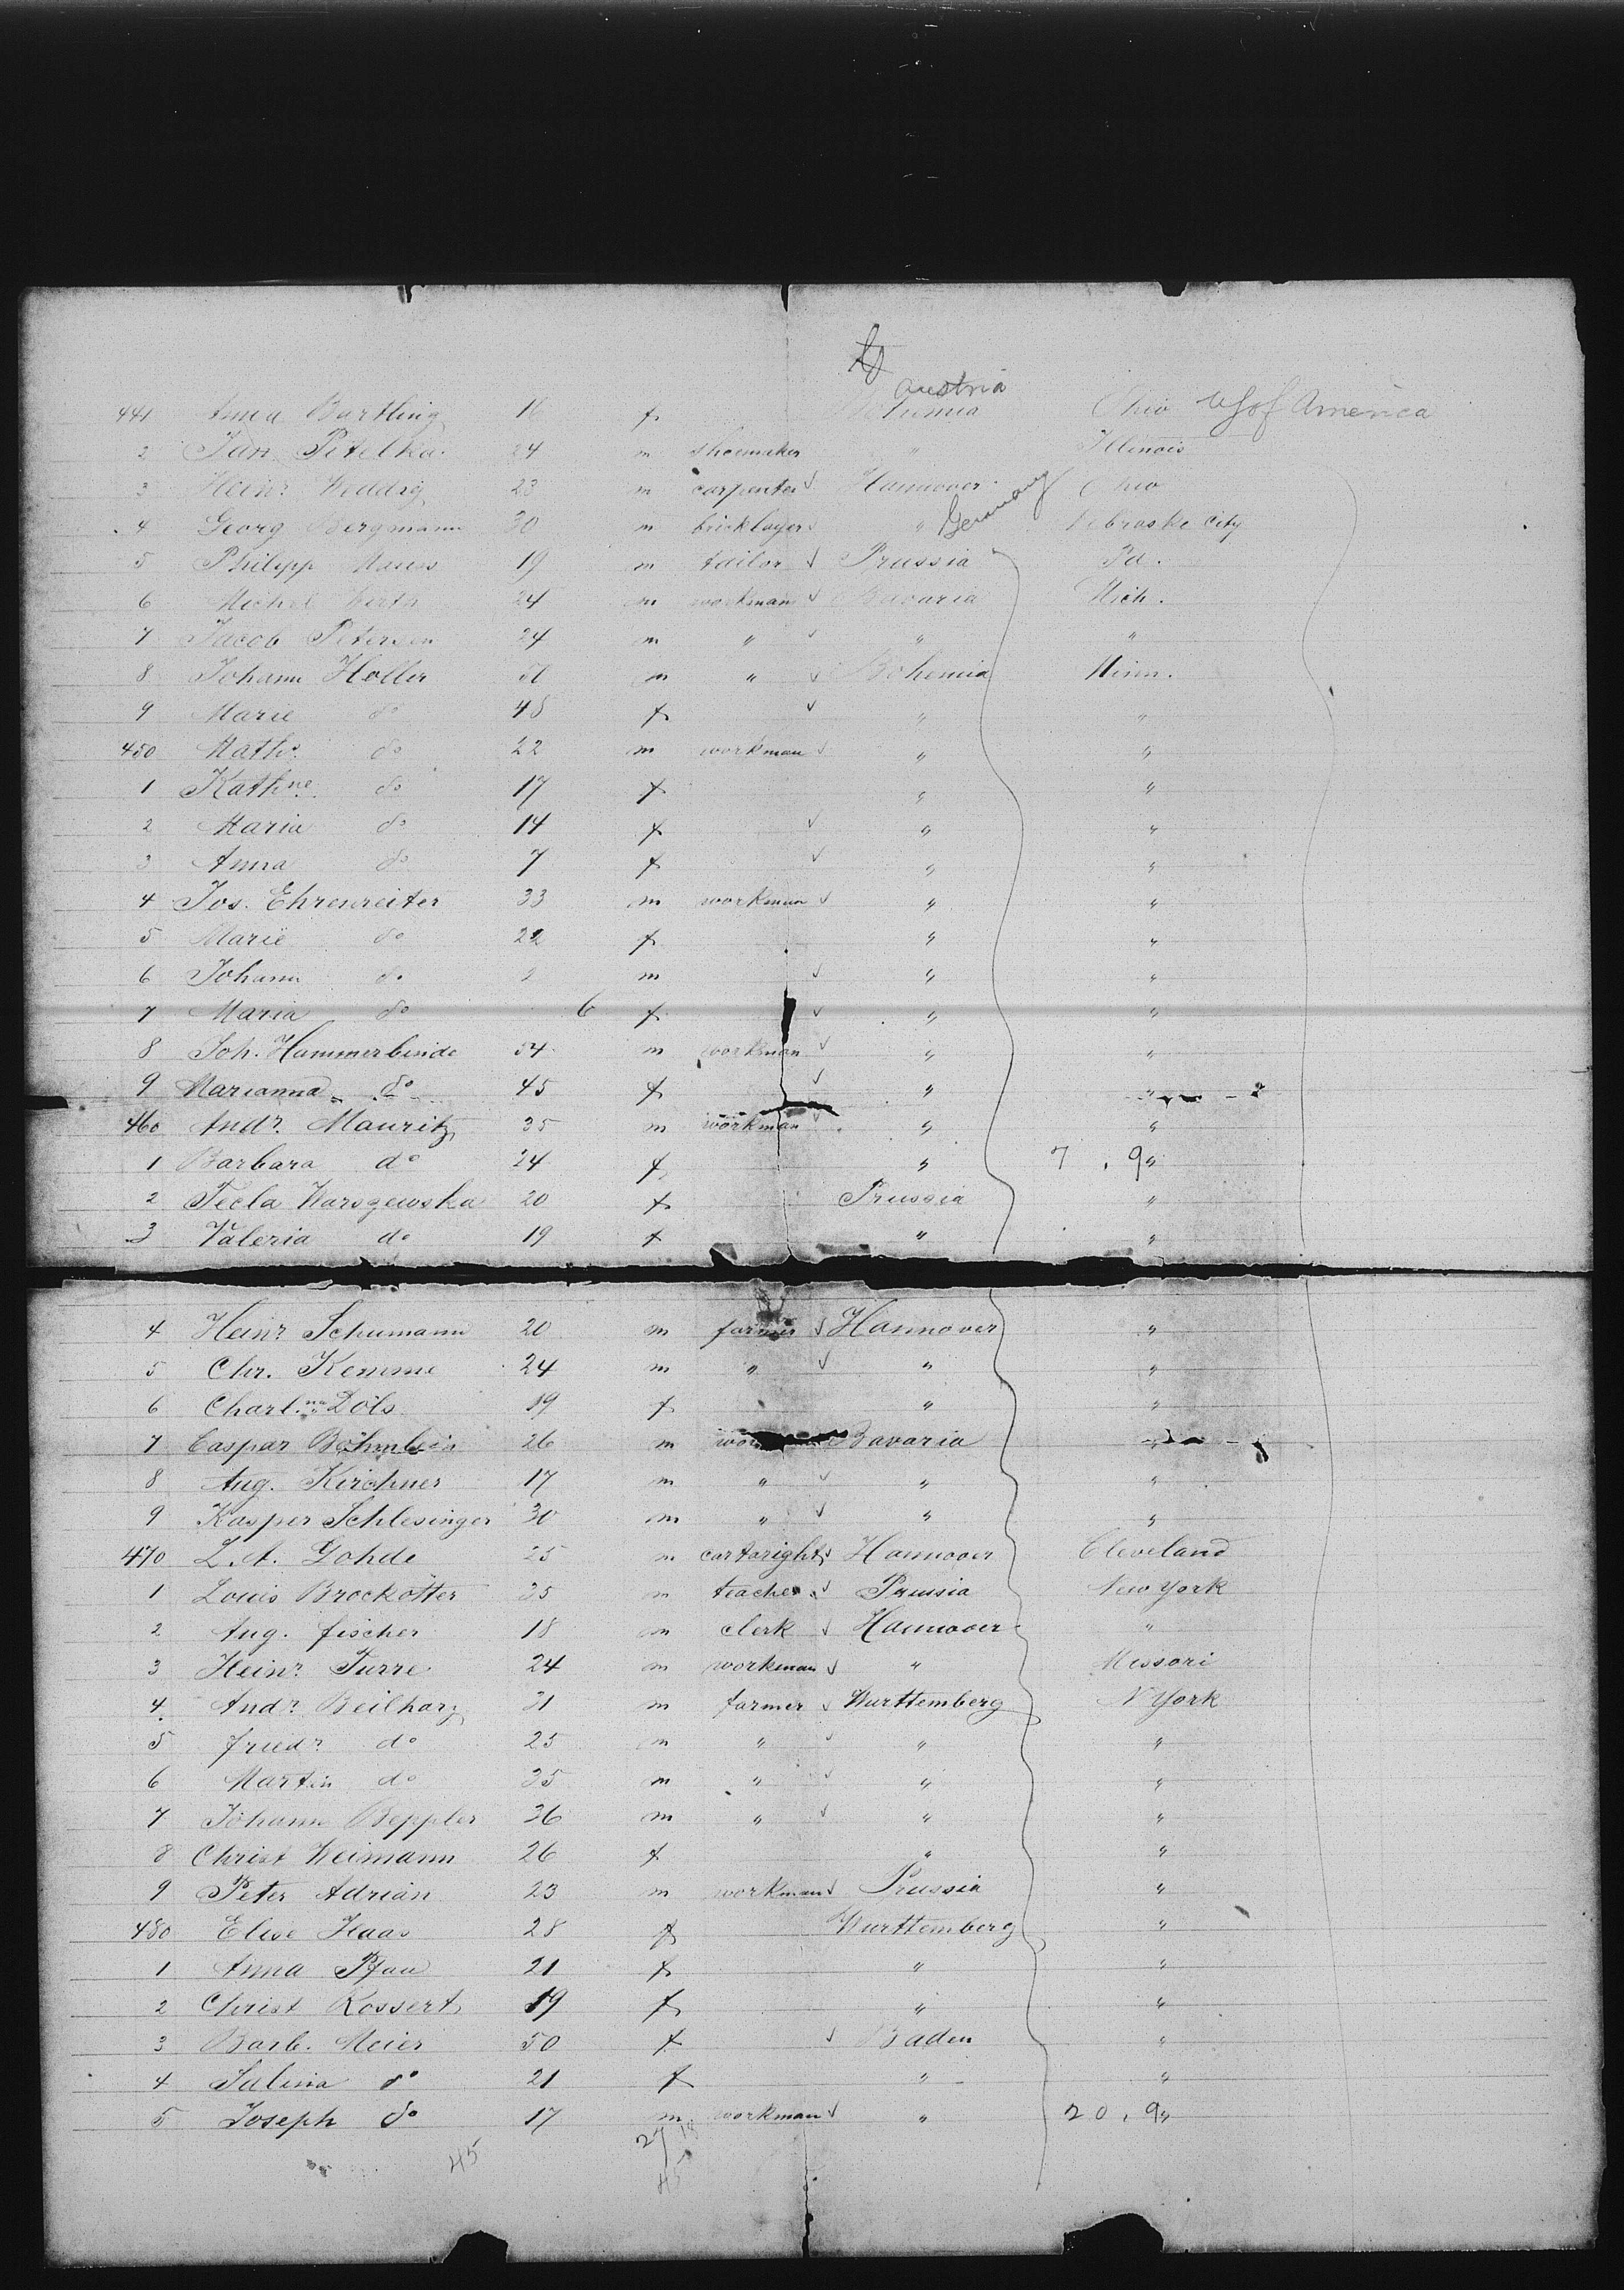 Austria
441 Anna Bartling 16 f Bohemia Ohio US of America
2 Jan Pitelka 24 m shoemaker " Illinois
3 Heinr. Weddig 23 m carpenter Hannover Ohio
Germany
4 Georg Bergmann 30 m bricklayer " Nebraske City
5 Philipp 19 m tailor Prussia Pa.
6 Michel 24 m workman Bavaria Mich.
7 Jacob Petersen 24 m " " "
8 Johann Holler m " Bohemia
9 Marie do 48 f " "
450 Maths. do 22 m workman " "
1 Kathne. do 17 f " "
2 Maria do 14 f " "
3 Anna do 7 f " "
4 Jos. Ehrenreiter 33 m workman " "
5 Marie do 22 f " "
6 Johann do m " "
7 Maria do 6 f " "
8 Joh. Hammerbinde 54 m workman " "
9 Marianna do 45 f " "
460 Andr. Mauritz 35 m workman " "
1 Barbara do 24 f " 7 . 9 "
2 Tecla Warszewska 20 f Prussia "
3 Valeria do 19 f " "
4 Heinr. Schumann 20 m farmer Hannover "
5 Chr. Kemme 24 m " " "
6 Charl.ne Döls 19 f " "
7 Caspar Böhmlein 26 m Bavaria "
8 Aug. Kirchner 17 m " " "
9 Kasper Schlesinger 30 m " " "
470 L. A. Gohde 25 m cartwright Hannover Cleveland
1 Louis Brockötter 25 m teacher Prussia New York
2 Aug. Fischer 18 m clerk Hannover "
3 Heinr. Turre 24 m workman " Missori
4. Andr. Beilharz 31 m farmer Württemberg N York
5 Friedr. do 25 m " " "
6 Martin do 35 m " " "
7 Johann Beppler 36 m " " "
8 Christ Weimann 26 f " "
9 Peter Adrian 23 m workman Prussia "
480 Elise Haas 28 f Württemberg "
1 Anna Pfau 21 f " "
2 Christ Rossert 19 f " "
3 Barb. Meier 50 f Baden "
4 Salina do 21 f " "
5 Joseph do 17 m workman " 20 . 9 "
45 27/18
45